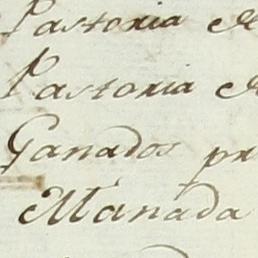 Pastoria de
Pastoria de
Ganados pr
Manada